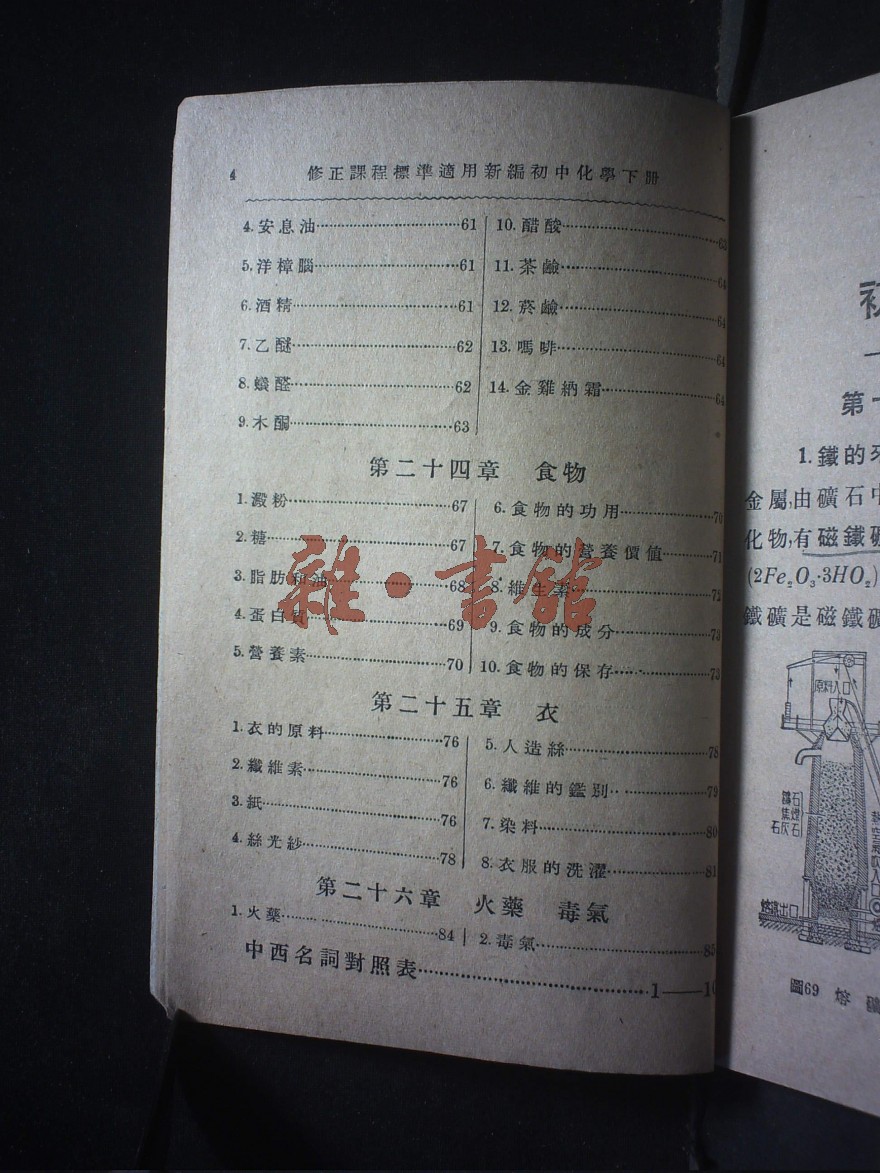 4 修正課程標準適用新編初中化學下册
4. 安息油……61
5. 洋樟腦……61
6. 酒精……61
7. 乙醚……62
8. 蟻醛……62
9. 木酮……63
10. 醋酸……63
11. 茶鹼……64
12. 菸鹼……64
13. 嗎啡……64
14. 金雞納霜……64
第二十四章 食物
1. 澱粉……67
2. 糖……67
3. 脂肪和油……68
4. 蛋白質……69
5. 營養素……70
6. 食物的功用……70
7. 食物的營養價值……71
8. 維生素……72
9. 食物的成分……73
10. 食物的保存……73
雜·書館
第二十五章 衣
1. 衣的原料……76
2. 纖維素……76
3. 紙……76
4. 絲光紗……78
5. 人造絲……78
6. 纖維的鑑別……79
7. 染料……80
8. 衣服的洗濯……81
第二十六章 火藥 毒氣
1. 火藥……84
2. 毒氣……85
中西名詞對照表……1——10
初
第一
1. 鐵的
金屬,由礦石中
化物,有磁鐵礦
(2Fe₂O₃·3HO₂)
鐵礦是磁鐵礦
原料入口
圖69 熔礦